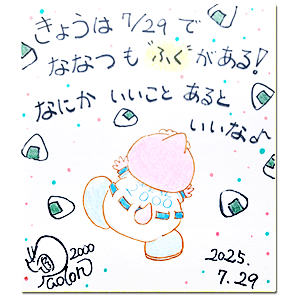 きょうは 7/29 で
ななつも “ふく”がある!
なにか いいこと あると
いいな♪
2000
2000
2025.
7.29